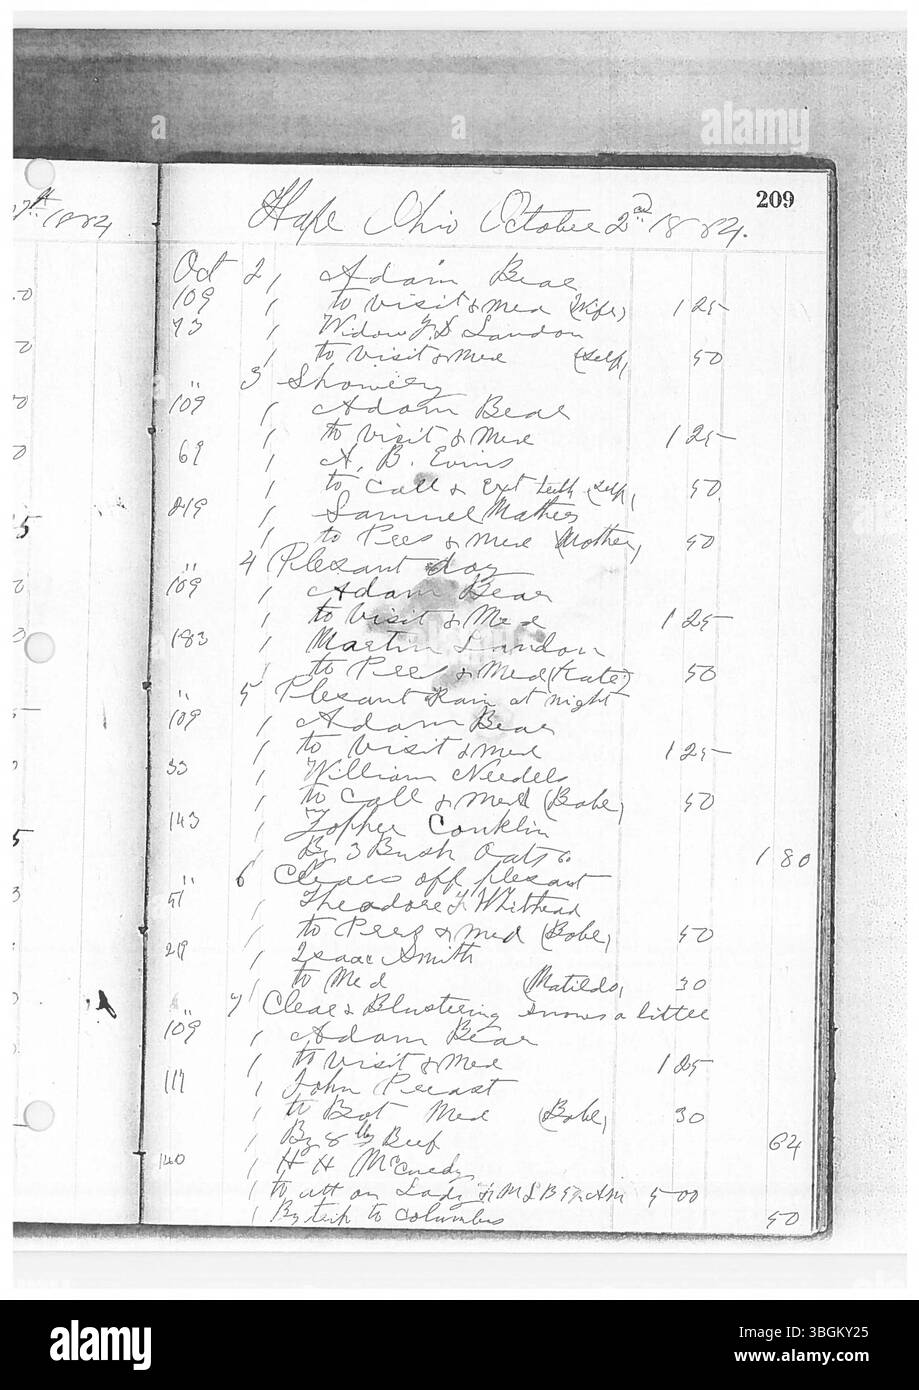 209
Ohio October 2nd 1884.
Oct 2 / Adam Bear
109 / to visit & Med (Wife) 1 25
73 / Widow J. S. Landon
/ to visit & Med (self) 50
" 3 Showery
109 / Adam Bear
/ to visit & Med 1 25
69 / A. B. Evins
/ to Call & Ext teeth (self) 50
219 / Samuel Mathes
/ to Pres & Med (Mother) 50
" 4 Plesant day
109 / Adam Bear
/ to visit & Med 1 25
183 / Martin Landon
/ to Pres & Med (Kate) 50
" 5 Plesant Rain at night
109 / Adam Bear
/ to visit & Med 1 25
33 / William Needels
/ to Call & Med (Babe) 50
143 / Zopher Conklin
/ By 3 Bush Oats 1 80
" 6 Clears off plesant
51 / Theodore F. Whithead
/ to Pres & Med (Babe) 50
219 / Isaac Smith
/ to Med (Matilda) 30
" 7 Clear & Blustering snows a little
109 / Adam Bear
/ to visit & Med 1 25
117 / John
/ to Bot Med (Babe) 30
/ By 8 lbs Beef 64
140 / H H
/ to att on Lady 5 00
/ By trip to Columbus 50
a
a
alamy
alamy
Image ID: 3BGKY25
www.alamy.com